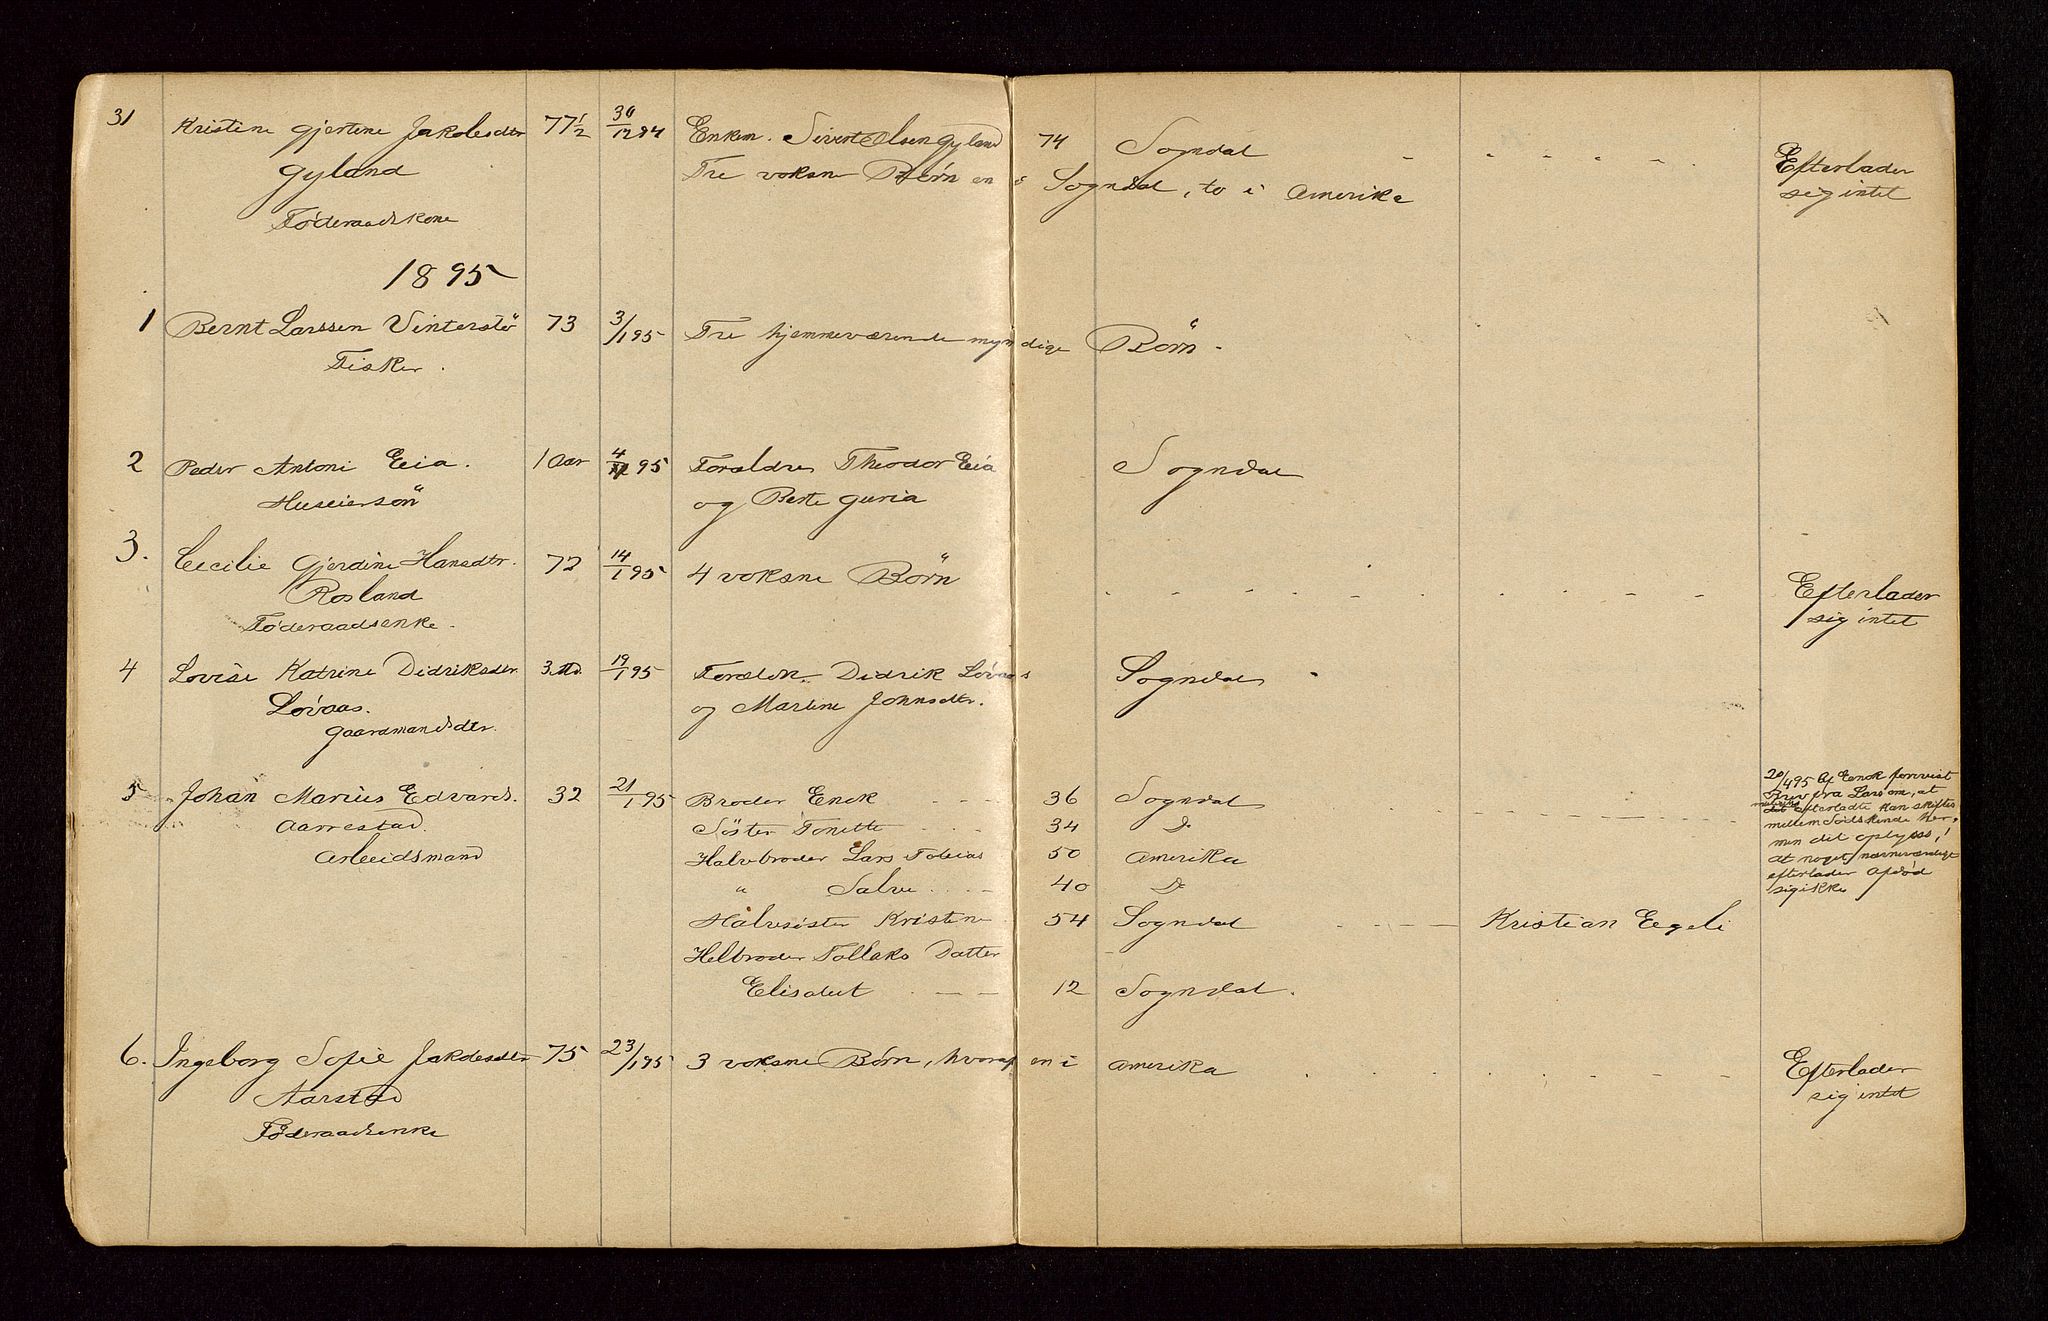 31 Kristine Gjertine Jakobsdtr 77½ 30/12 94 Enkem. Sivert Olsen Gyland 74 Sogndal - - - - -
Gyland Tre voksne Børn en i Sogndal, to i Amerika Efterlader
Føderaadskone sig intet
1895
1 Bernt Larssen Vinterstö 73 3/1 95 Tre hjemmeværende myndige Börn -
Fisker.
2 Peder Antoni Eeia. 1 Aar 4/1 95 Forældre Theodor Eeia Sogndal
Huseiersön og Berte Guria
3. Cecilie Gjerdine Hansdtr. 72 14/1 95 4 voksne Börn - - - - - Efterlader
Rosland sig intet
Føderaadsenke.
4 Lovise Katrine Didriksdtr. 3 Md. 19/1 95 Foreldre Didrik Løvaas Sogndal
Løvaas. og Martine Johnsdtr.
Gaardmandsdtr.
5 Johan Marius Edvards. 32 21/1 95 Broder Enok - - - 36 Sogndal
Aarrestad. Søster Tonette - - - 34 Do
Arbeidsmand Halvbroder Lars Tobias 50 Amerika
" Salve - - - 40 Do
Halvsøster Kristine 54 Sogndal - - - - Kristian Eegeli
Helbroder Tollaks Datter
Elisabet - - - 12 Sogndal.
20/4 95 Af Enok forevist
Brev fra Lars om, at
efterladte kan skiftes
mellem Sødskende her,
men det oplyses,
at noget nævneværdigt
efterlader Afdød
sig ikke
6. Ingeborg Sofie Jakobsdtr 75 23/1 95 3 voksne Børn, hvoraf en i Amerika - - - - - Efterlader
Aarstad sig intet
Føderaadsenke